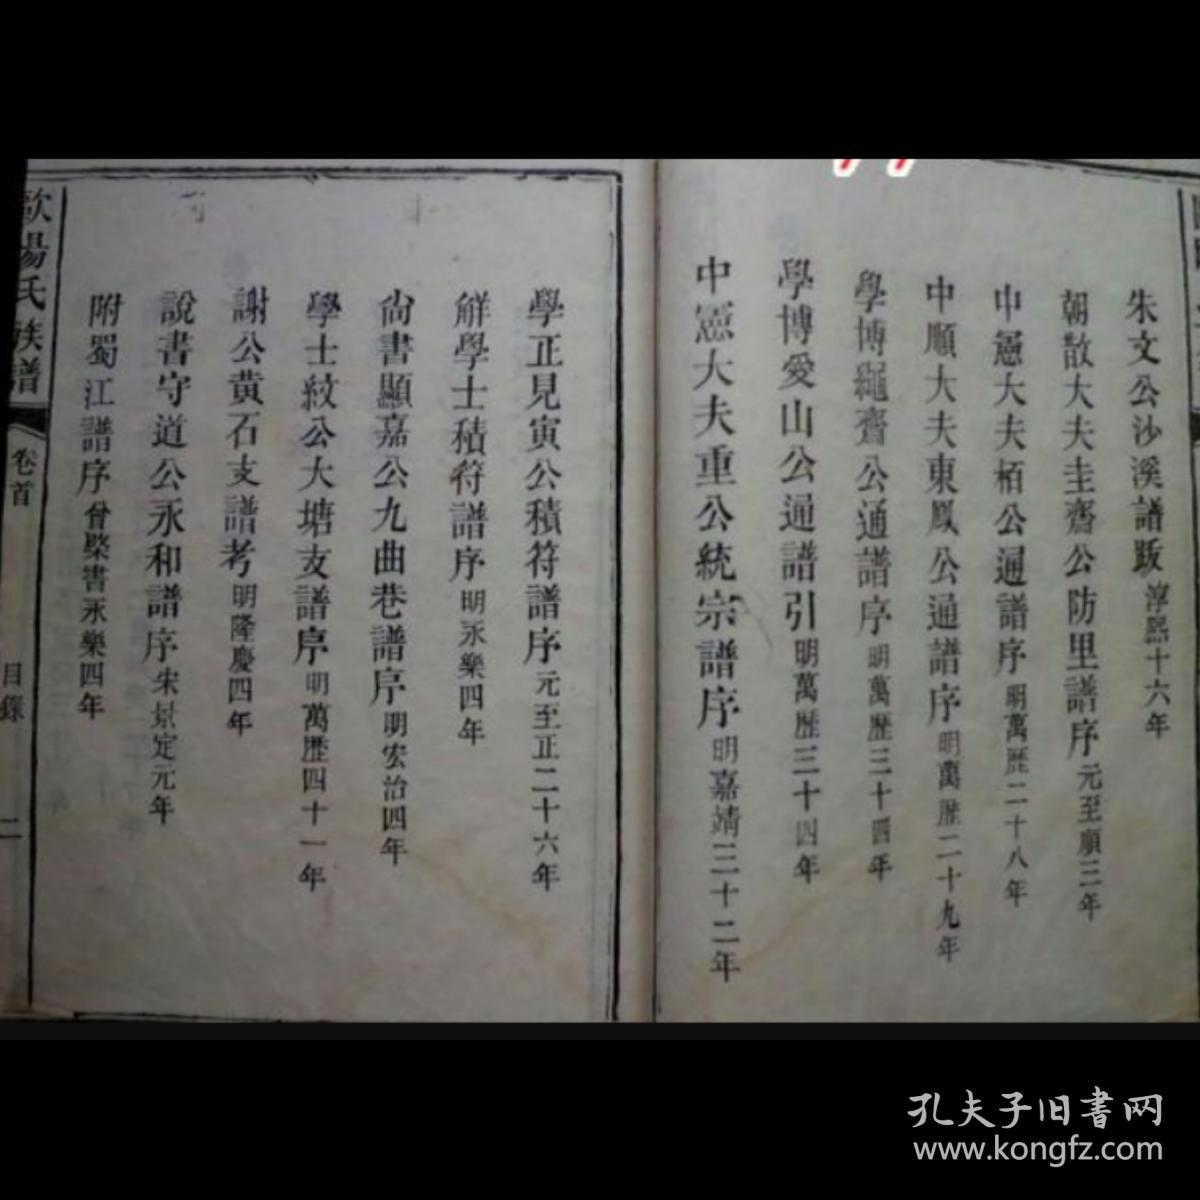 朱文公沙溪譜跋淳熙十六年
朝散大夫圭齋公防里譜序元至順三年
中憲大夫栢公通譜序明萬歷二十八年
中順大夫東鳳公通譜序明萬歷二十九年
學博繩齋公通譜序明萬歷三十四年
學博愛山公通譜引明萬歷三十四年
中憲大夫重公統宗譜序明嘉靖三十二年
學正見寅公積符譜序元至正二十六年
解學士積符譜序明永樂四年
尙書顯嘉公九曲巷譜序明宏治四年
學士紋公大塘支譜序明萬歷四十一年
謝公黄石支譜考明隆慶四年
說書守道公永和譜序宋景定元年
附蜀江譜序曾棨書永樂四年
歐陽氏族譜
卷首
目錄
二
孔夫子旧书网
www.kongfz.com